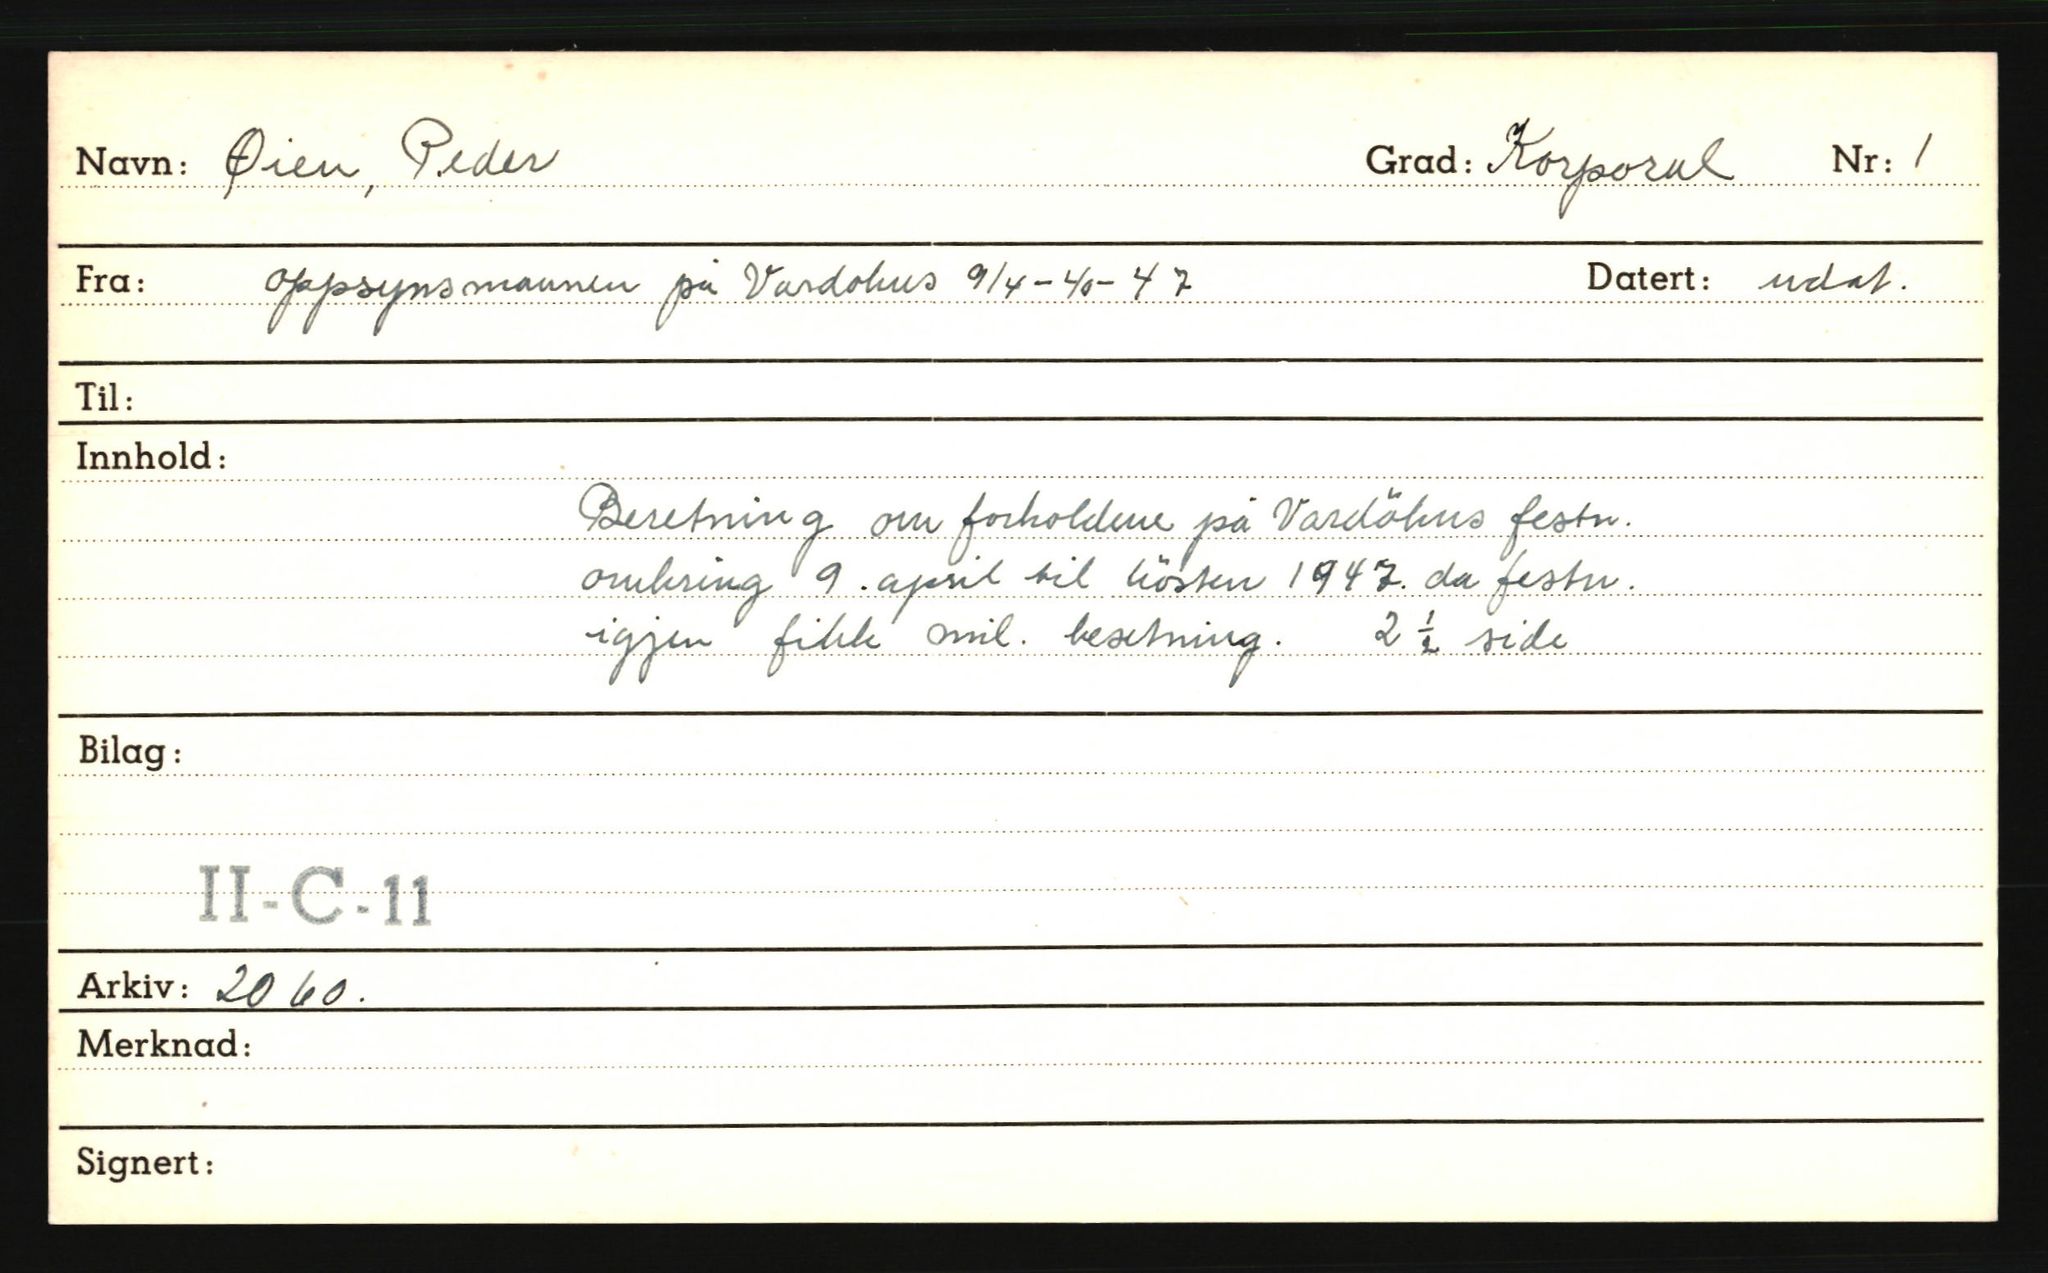 Navn: Øien, Peder Grad: Korporal Nr: 1
Fra: oppsynsmannen på Vardøhus 9/4-40-47 Datert: udat.
Til:
Innhold:
Beretning om forholdene på Vardöhus festn.
omkring 9. april til hösten 1947. da festn.
igjen fikk mil. besetning. 2 ½ side
Bilag:
II-C-11
Arkiv: 2060.
Merknad:
Signert: